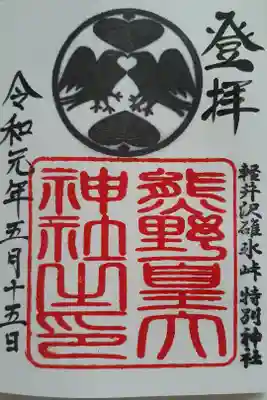 登拝
軽井沢碓氷峠 特別神社
熊野皇大
神社之印
令和元年五月十五日